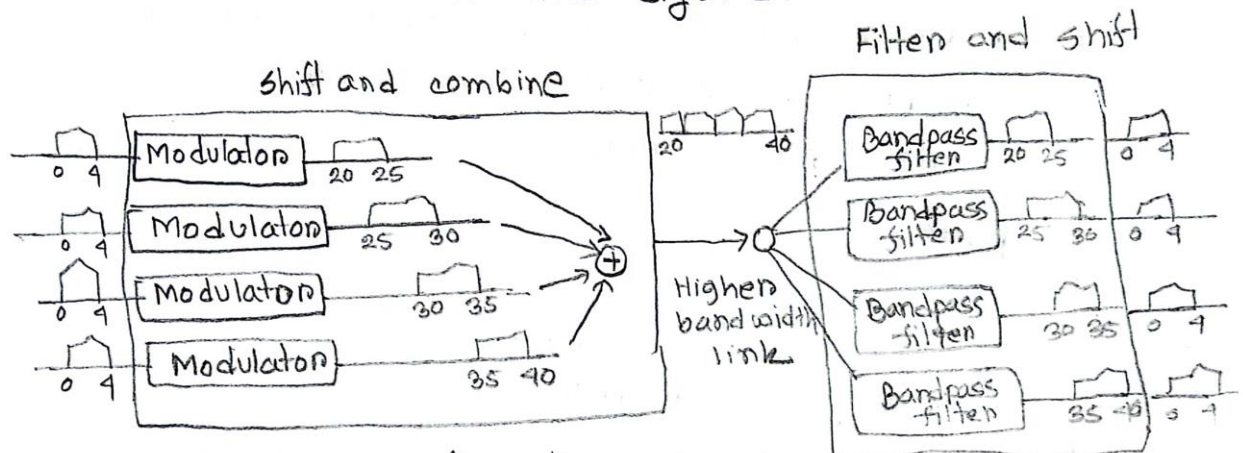 Filter and shift
shift and combine
0 4 Modulator 20 25
0 4 Modulator 25 30
0 4 Modulator 30 35
0 4 Modulator 35 40
20 40
Higher
bandwidth
link
Bandpass
filter 20 25 0 4
Bandpass
filter 25 30 0 4
Bandpass
filter 30 35 0 4
Bandpass
filter 35 40 0 4